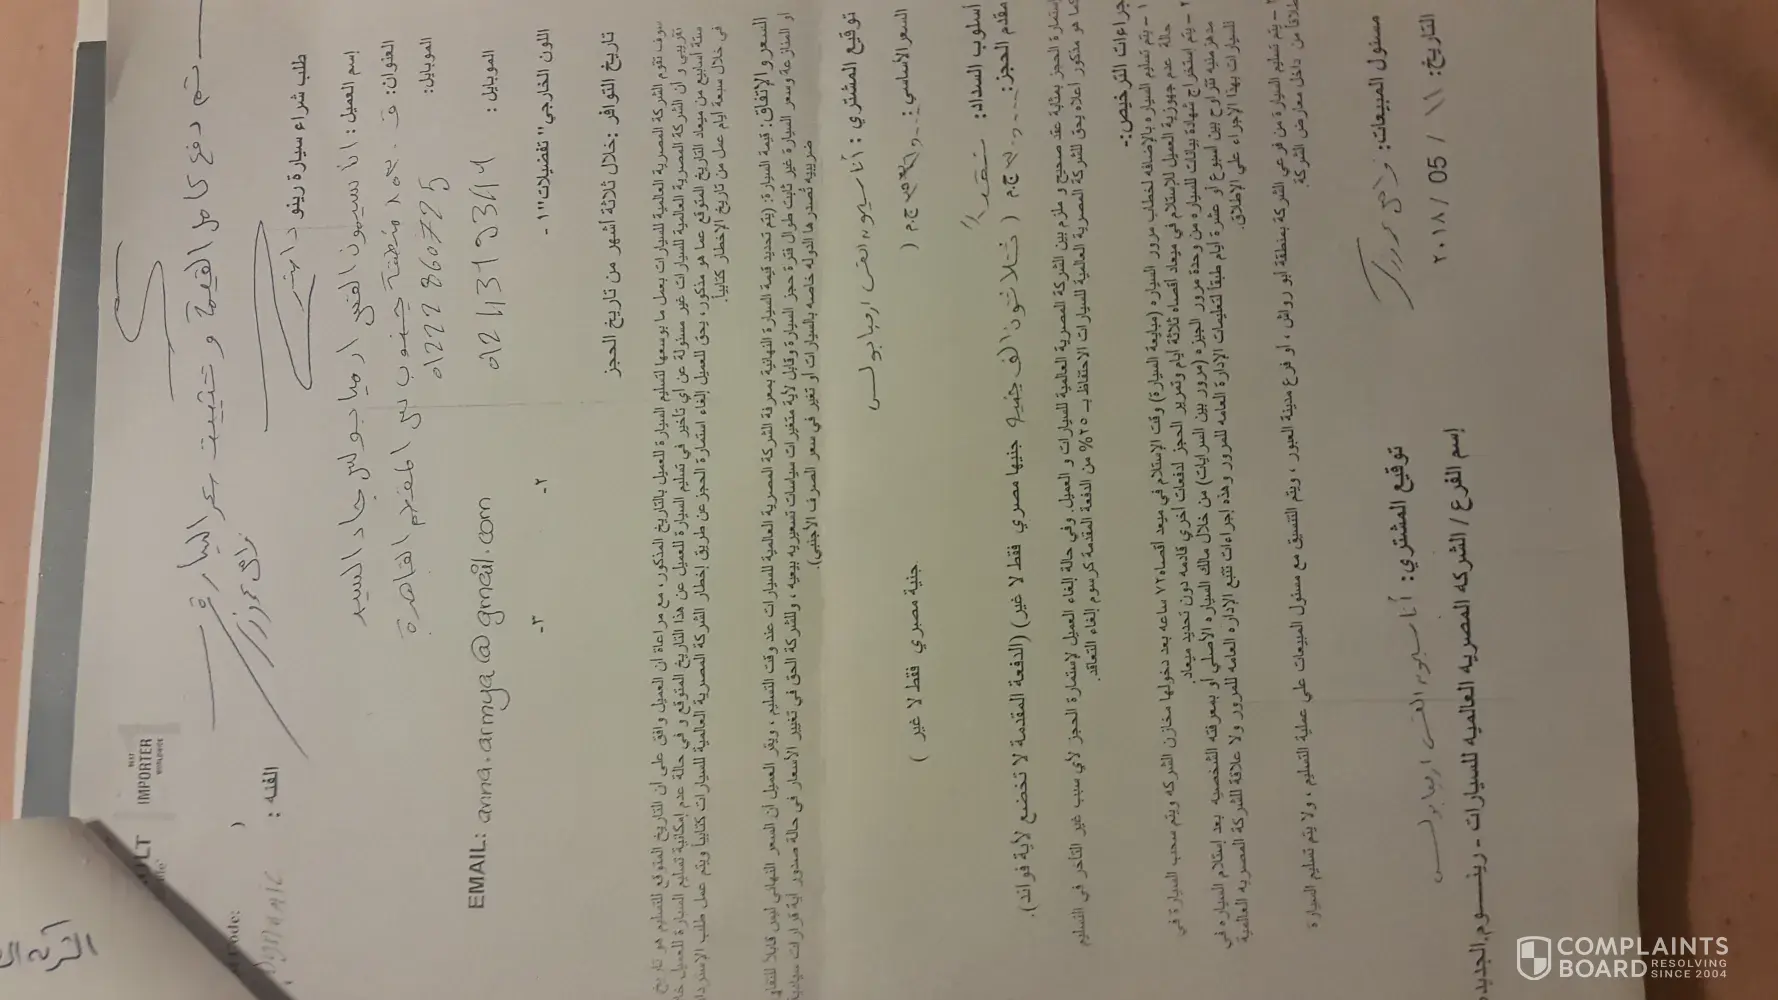 تم دفع كامل القيمة و تثبيت سعر السيارة
رامي
IMPORTER
WORLDWIDE
طلب شراء سيارة رينو
الفئه :
إسم العميل : انا سيمون القس ارميا بولس جاد السيد
العنوان:
المقطم القاهرة
الموبايل: 01222860725
الموبايل :
EMAIL: anna.armya@gmail.com
اللون الخارجي "تفضيلات" ١-
٢-
٣-
تاريخ التوافر :خلال ثلاثة أشهر من تاريخ الحجز
سوف تقوم الشركة المصرية العالمية للسيارات بعمل ما بوسعها لتسليم السيارة للعميل بالتاريخ المذكور، مع مراعاة ان العميل وافق على ان التاريخ المتوقع للتسليم هو تاريخ
تقريبي و ان الشركة المصرية العالمية للسيارات غير مسئولة عن اي تأخير في تسليم السيارة للعميل عن هذا التاريخ المتوقع و في حالة عدم إمكانية تسليم السيارة للعميل
ستة أسابيع من ميعاد التاريخ المتوقع عما هو مذكور، يحق للعميل إلغاء استمارة الحجز عن طريق إخطار الشركة المصرية العالمية للسيارات كتابياً ويتم عمل طلب الاسترداد
في خلال سبعة أيام عمل من تاريخ الإخطار كتابياً.
السعر والإتفاق: قيمة السيارة: (يتم تحديد قيمة السيارة النهائية بمعرفة الشركة المصرية العالمية للسيارات عند وقت التسليم ، ويقر العميل أن السعر النهائي ليس قابلا
او المنازعة وسعر السيارة غير ثابت طوال فترة حجز السيارة وقابل لأية متغيرات سياسات تسعيريه بيعيه ، وللشركة الحق في تغيير الأسعار في حالة صدور أية قرارات سيادية
ضريبيه تصدرها الدوله خاصه بالسيارات أو تغير في سعر الصرف الأجنبي).
توقيع المشتري : أنا سيمون القس ارميا بولس
السعر الأساسي:
ج.م (
جنية مصري فقط لا غير )
أسلوب السداد:
مقدم الحجز:
ج.م ( ثلاثون الف جنيه جنيها مصري فقط لا غير) (الدفعة المقدمة لا تخضع لأية فوائد).
إستمارة الحجز بمثابة عقد صحيح و ملزم بين الشركة المصرية العالمية للسيارات و العميل. وفي حالة إلغاء العميل لإستمارة الحجز لأي سبب غير التأخر في التسليم
كما هو مذكور اعلاه يحق للشركة المصرية العالمية للسيارات الاحتفاظ بـ ٢٥% من الدفعة المقدمة كرسوم إلغاء التعاقد.
إجراءات الترخيص:-
١- يتم تسليم السياره بالإضافه لخطاب مرور السياره (مبايعة السيارة) وقت الإستلام في ميعاد أقصاه ٧٢ ساعه بعد دخولها مخازن الشركه ويتم سحب السيارة في
حالة عدم جهوزية العميل للاستلام في ميعاد أقصاه ثلاثة أيام وتمرير الحجز لدفعات أخري قادمه دون تحديد ميعاد.
٢- يتم إستخراج شهادة بيانات للسياره من وحدة مرور الجيزه (مرور بين السرايات) من خلال مالك السياره الأصلي أو بمعرفته الشخصيه بعد إستلام السياره في
مده زمنيه تتراوح بين أسبوع أو عشرة أيام طبقاً لتعليمات الإدارة العامه للمرور وهذه إجراءات تتبع الإداره العامه للمرور ولا علاقة للشركة المصريه العالمية
للسيارات بهذا الإجراء على الإطلاق.
٣- يتم تسليم السيارة من فرعي الشركة بمنطقة أبو رواش ، او فرع مدينة العبور ، ويتم التنسيق مع مسئول المبيعات على عملية التسليم ، ولا يتم تسليم السيارة
إطلاقاً من داخل معارض الشركة.
مسئول المبيعات:
توقيع المشتري: أنا سيمون القس ارميا بولس
التاريخ: ١١ / 05 / ٢٠١٨
إسم الفرع / الشركه المصريه العالميه للسيارات - رينو م.الجديده
COMPLAINTS
BOARD RESOLVING
SINCE 2004